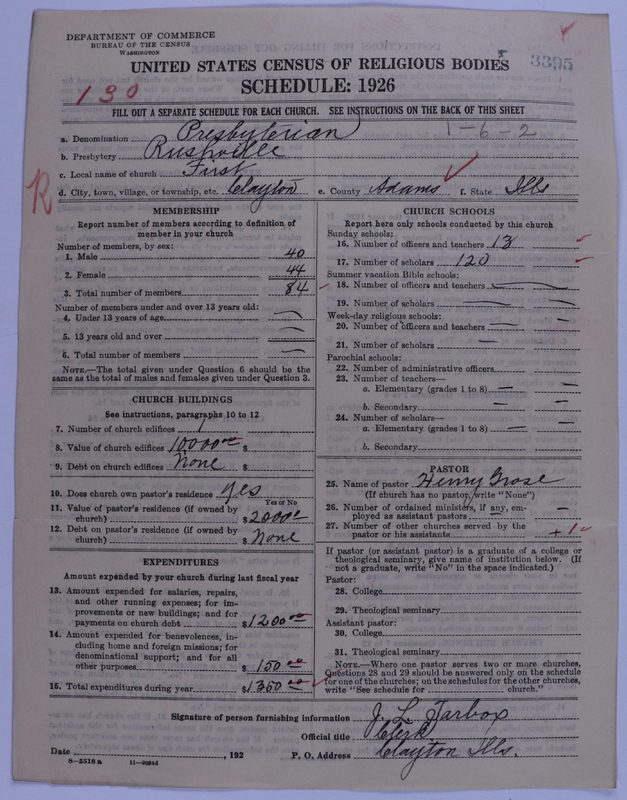 DEPARTMENT OF COMMERCE
BUREAU OF THE CENSUS
WASHINGTON
UNITED STATES CENSUS OF RELIGIOUS BODIES
3395
SCHEDULE: 1926
130
FILL OUT A SEPARATE SCHEDULE FOR EACH CHURCH. SEE INSTRUCTIONS ON THE BACK OF THIS SHEET
a. Denomination Presbyterian 1-6-2
b. Presbytery Rushville
c. Local name of church First
R
d. City, town, village, or township, etc. Clayton e. County Adams f. State Ills
MEMBERSHIP
Report number of members according to definition of
member in your church
Number of members, by sex:
1. Male 40
2. Female 44
3. Total number of members 84
Number of members under and over 13 years old:
4. Under 13 years of age —
5. 13 years old and over —
6. Total number of members —
NOTE.—The total given under Question 6 should be
same as the total of males and females given under Question 3.
CHURCH BUILDINGS
See instructions, paragraphs 10 to 12
7. Number of church edifices 1
8. Value of church edifices 10000.00 $
9. Debt on church edifices None $
10. Does church own pastor's residence yes
Yes or No
11. Value of pastor's residence (if owned by
church) $ 2000.00
12. Debt on pastor's residence (if owned by
church) $ None
EXPENDITURES
Amount expended by your church during last fiscal year
13. Amount expended for salaries, repairs,
and other running expenses; for im-
provements or new buildings; and for
payments on church debt $ 1200.00
14. Amount expended for benevolences, in-
cluding home and foreign missions; for
denominational support; and for all
other purposes $ 150.00
15. Total expenditures during year $ 1350.00
CHURCH SCHOOLS
Report here only schools conducted by this church
Sunday schools:
16. Number of officers and teachers 13
17. Number of scholars 120
Summer vacation Bible schools:
18. Number of officers and teachers —
19. Number of scholars —
Week-day religious schools:
20. Number of officers and teachers —
21. Number of scholars —
Parochial schools:
22. Number of administrative officers
23. Number of teachers—
a. Elementary (grades 1 to 8) —
b. Secondary —
24. Number of scholars—
a. Elementary (grades 1 to 8) —
b. Secondary
PASTOR
25. Name of pastor Henry Grose
(If church has no pastor, write "None")
26. Number of ordained ministers, if any, em-
ployed as assistant pastors —
27. Number of other churches served by the
pastor or his assistants +1
If pastor (or assistant pastor) is a graduate of a college or
theological seminary, give name of institution below. (If
not a graduate, write "No" in the space indicated.)
Pastor:
28. College
29. Theological seminary
Assistant pastor:
30. College
31. Theological seminary
NOTE.—Where one pastor serves two or more churches,
Questions 28 and 29 should be answered only on the schedule
for one of the churches; on the schedules for the other churches,
write "See schedule for church."
Signature of person furnishing information J. L. Tarbox
Official title Clerk
Date , 192 P. O. Address Clayton Ills.
8-5518 a